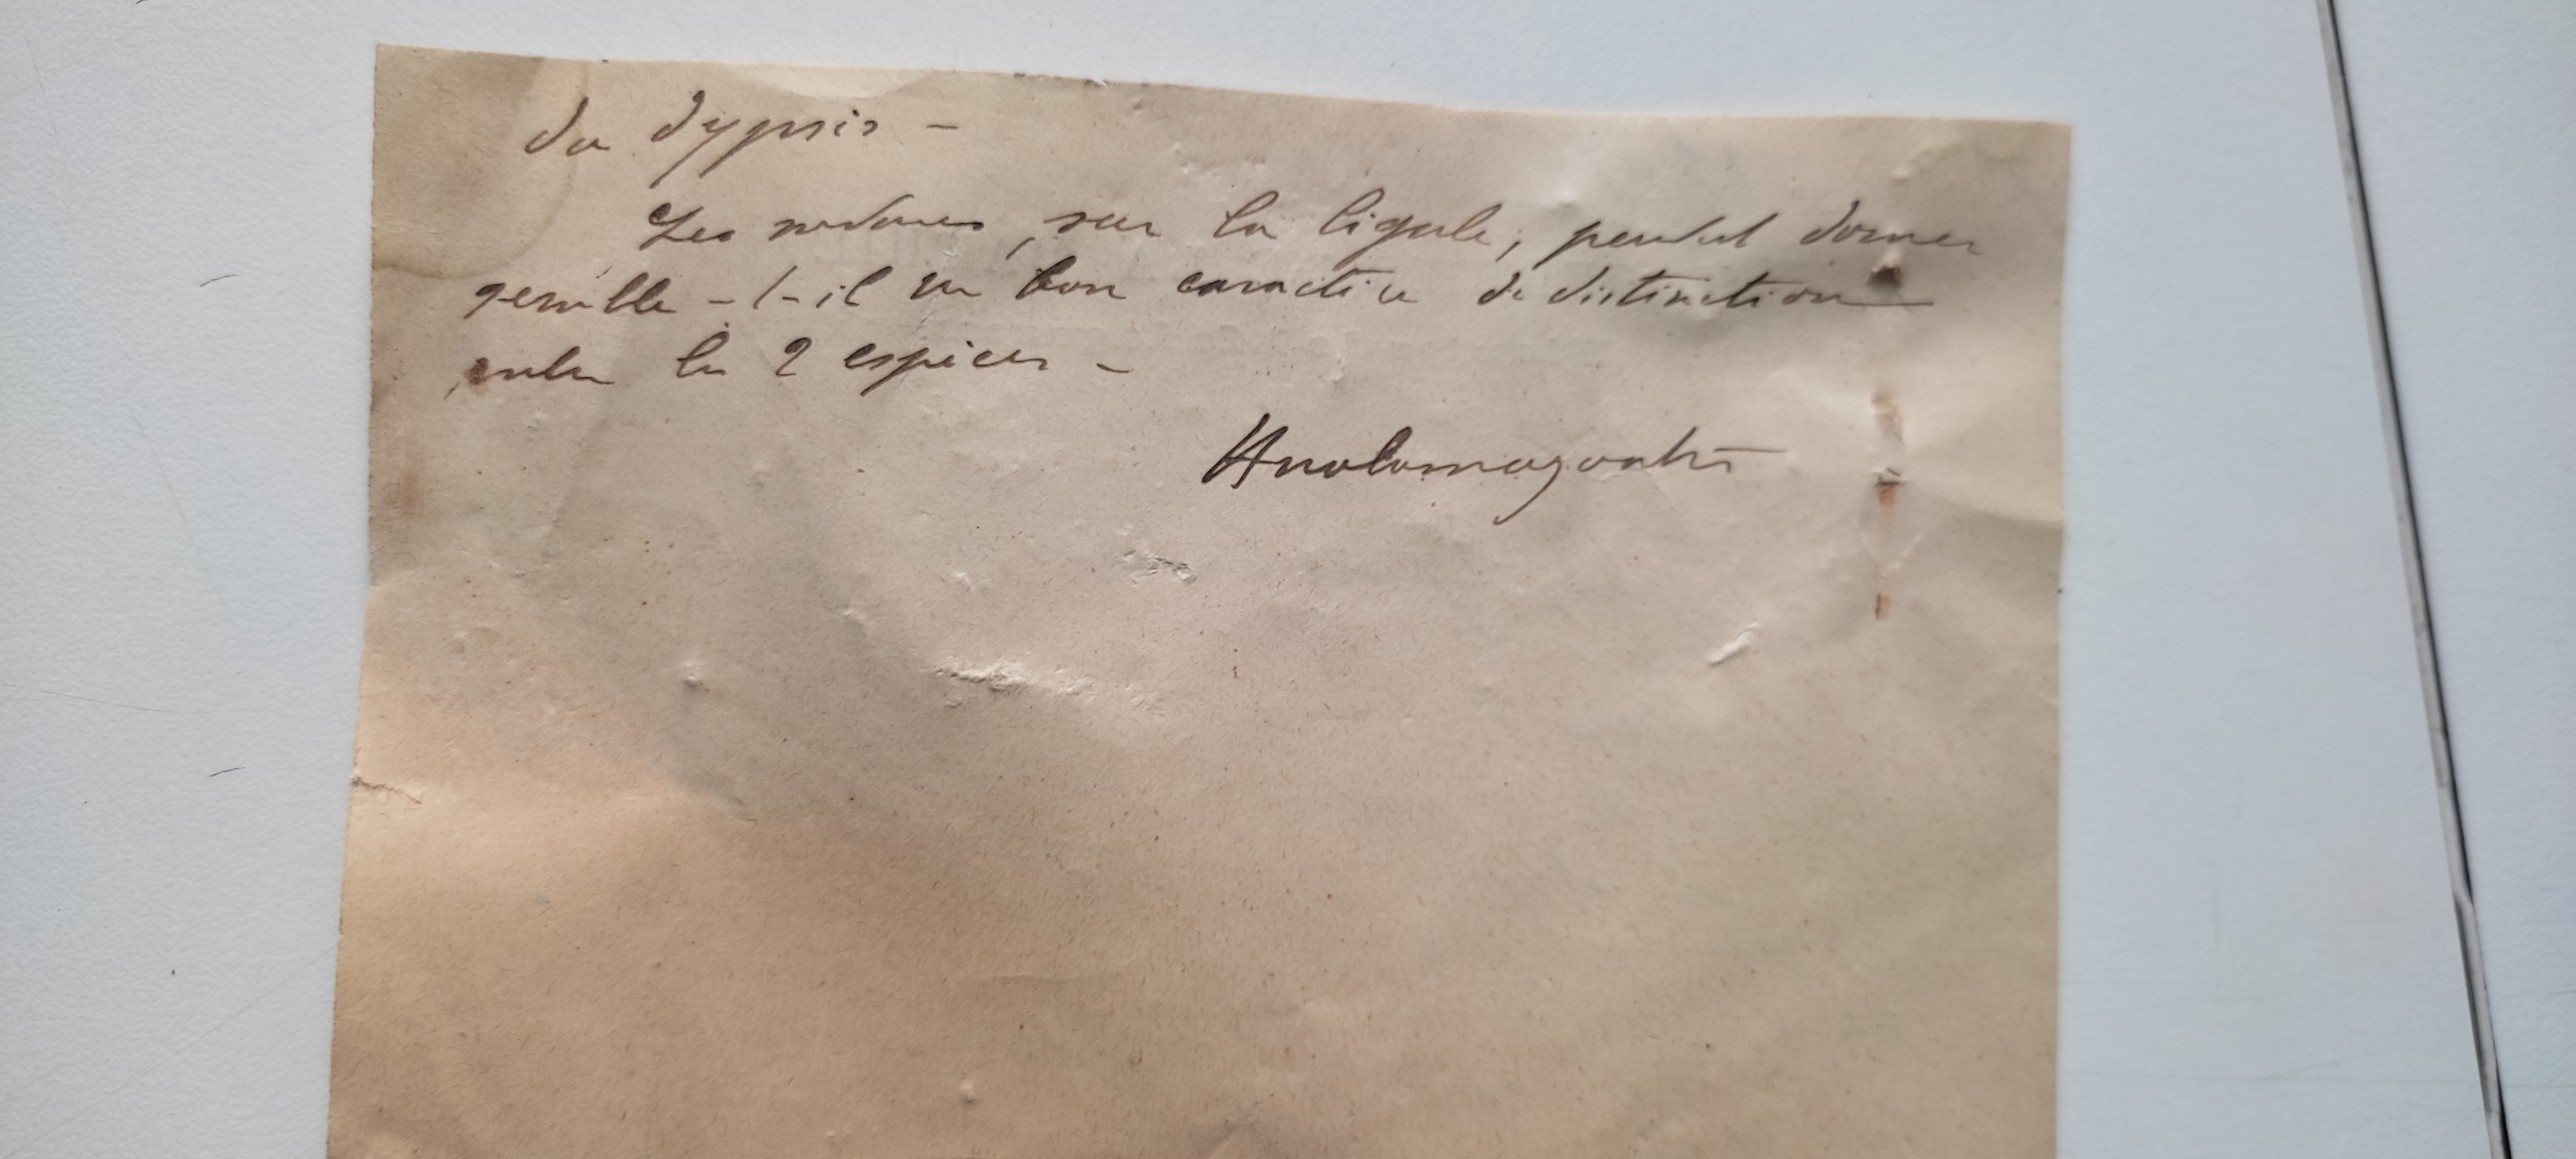 du dypsis -
Les nodules, sur la ligule, peuvent donner
semble-t-il un bon caractère de distinction
entre les 2 espèces -
Analamazaotra